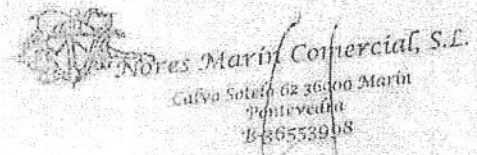 Nores Marín Comercial, S.L.
Calvo Sotelo 62 36900 Marín
Pontevedra
B-36553998